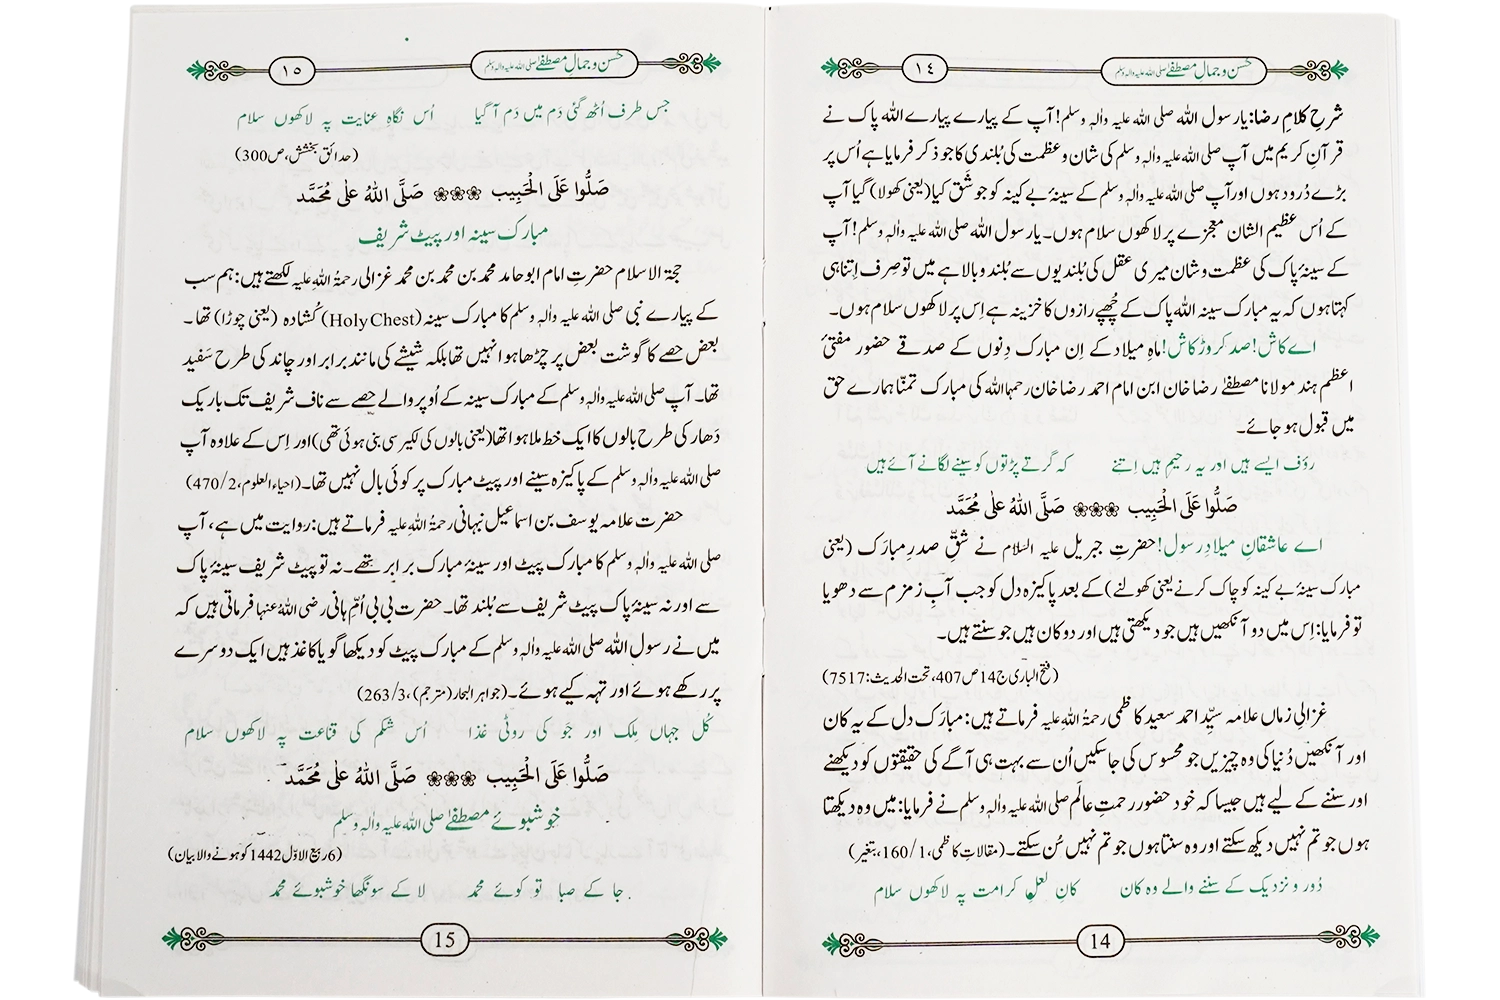 حُسن و جمالِ مصطفےٰ صلی اللہ علیہ والہٖ وسلم
١٤
شرحِ کلامِ رضا: یارسول اللہ صلی اللہ علیہ والہٖ وسلم! آپ کے پیارے پیارے اللہ پاک نے
قرآنِ کریم میں آپ صلی اللہ علیہ والہٖ وسلم کی شان و عظمت کی بُلندی کا جو ذکر فرمایا ہے اُس پر
بڑے دُرود ہوں اور آپ صلی اللہ علیہ والہٖ وسلم کے سینۂ بے کینہ کو جو شَق کیا (یعنی کھولا) گیا آپ
کے اُس عظیم الشان معجزے پر لاکھوں سلام ہوں۔ یارسول اللہ صلی اللہ علیہ والہٖ وسلم! آپ
کے سینۂ پاک کی عظمت و شان میری عقل کی بُلندیوں سے بُلند و بالا ہے میں تو صِرف اِتنا ہی
کہتا ہوں کہ یہ مبارک سینہ اللہ پاک کے چُھپے رازوں کا خزینہ ہے اِس پر لاکھوں سلام ہوں۔
اے کاش! صد کروڑ کاش! ماہِ میلاد کے اِن مبارک دِنوں کے صدقے حضور مفتیٔ
اعظم ہند مولانا مصطفےٰ رضا خان ابن امام احمد رضا خان رحمہما اللہ کی مبارک تمنّا ہمارے حق
میں قبول ہو جائے۔
رؤف ایسے ہیں اور یہ رحیم ہیں اِتنے کہ گرتے پڑتوں کو سینے لگانے آئے ہیں
صَلُّوا عَلَى الْحَبِيب ❀❀❀ صَلَّى اللهُ عَلٰى مُحَمَّد
اے عاشقانِ میلادِ رسول! حضرتِ جبریل علیہ السّلام نے شَقِّ صدرِ مبارَک (یعنی
مبارک سینۂ بے کینہ کو چاک کرنے یعنی کھولنے) کے بعد پاکیزہ دل کو جب آبِ زمزم سے دھویا
تو فرمایا: اِس میں دو آنکھیں ہیں جو دیکھتی ہیں اور دو کان ہیں جو سنتے ہیں۔
(فتح الباری ج14 ص407، تحت الحدیث: 7517)
غزالیِ زماں علامہ سیِّد احمد سعید کاظمی رحمۃُ اللہِ علیہ فرماتے ہیں: مبارَک دل کے یہ کان
اور آنکھیں دُنیا کی وہ چیزیں جو محسوس کی جاسکیں اُن سے بہت ہی آگے کی حقیقتوں کو دیکھنے
اور سننے کے لیے ہیں جیسا کہ خود حضور رحمتِ عالَم صلی اللہ علیہ والہٖ وسلم نے فرمایا: میں وہ دیکھتا
ہوں جو تم نہیں دیکھ سکتے اور وہ سنتا ہوں جو تم نہیں سُن سکتے۔ (مقالاتِ کاظمی، 160/1، بتغیر)
دُور و نزدیک کے سننے والے وہ کان کانِ لعلِ کرامت پہ لاکھوں سلام
14
حُسن و جمالِ مصطفےٰ صلی اللہ علیہ والہٖ وسلم
١٥
جس طرف اُٹھ گئی دَم میں دَم آگیا اُس نگاہِ عنایت پہ لاکھوں سلام
(حدائق بخشش، ص300)
صَلُّوا عَلَى الْحَبِيب ❀❀❀ صَلَّى اللهُ عَلٰى مُحَمَّد
مبارک سینہ اور پیٹ شریف
حجۃ الاسلام حضرتِ امام ابو حامد محمد بن محمد بن محمد غزالی رحمۃُ اللہِ علیہ لکھتے ہیں: ہم سب
کے پیارے نبی صلی اللہ علیہ والہٖ وسلم کا مبارک سینہ (Holy Chest) کُشادہ (یعنی چوڑا) تھا۔
بعض حصے کا گوشت بعض پر چڑھا ہوا نہیں تھا بلکہ شیشے کی مانند برابر اور چاند کی طرح سَفید
تھا۔ آپ صلی اللہ علیہ والہٖ وسلم کے مبارک سینہ کے اُوپر والے حصے سے ناف شریف تک باریک
دَھار کی طرح بالوں کا ایک خط ملا ہوا تھا (یعنی بالوں کی لکیر سی بنی ہوئی تھی) اور اِس کے علاوہ آپ
صلی اللہ علیہ والہٖ وسلم کے پاکیزہ سینے اور پیٹ مبارک پر کوئی بال نہیں تھا۔ (احیاء العلوم، 470/2)
حضرت علامہ یوسف بن اسماعیل نبہانی رحمۃُ اللہِ علیہ فرماتے ہیں: روایت میں ہے، آپ
صلی اللہ علیہ والہٖ وسلم کا مبارک پیٹ اور سینۂ مبارک برابر تھے۔ نہ تو پیٹ شریف سینۂ پاک
سے اور نہ سینۂ پاک پیٹ شریف سے بُلند تھا۔ حضرت بی بی اُمِّ ہانی رضی اللہُ عنہا فرماتی ہیں کہ
میں نے رسول اللہ صلی اللہ علیہ والہٖ وسلم کے مبارک پیٹ کو دیکھا گویا کاغذ ہیں ایک دوسرے
پر رکھے ہوئے اور تہہ کیے ہوئے۔ (جواہر البحار (مترجم)، 263/3)
کُل جہاں مِلک اور جَو کی روٹی غذا اُس شکم کی قناعت پہ لاکھوں سلام
صَلُّوا عَلَى الْحَبِيب ❀❀❀ صَلَّى اللهُ عَلٰى مُحَمَّد
خوشبوئے مصطفےٰ صلی اللہ علیہ والہٖ وسلم
(6 ربیع الاوّل 1442 کو ہونے والا بیان)
جا کے صبا تو کوئے محمد لا کے سونگھا خوشبوئے محمد
15